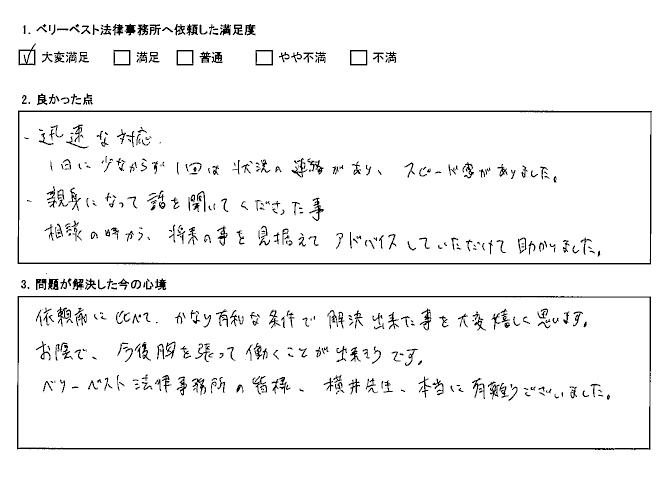 1. ベリーベスト法律事務所へ依頼した満足度
☑ 大変満足 □ 満足 □ 普通 □ やや不満 □ 不満
2. 良かった点
- 迅速な対応.
1日に少なからず1回は状況の連絡があり、スピード感がありました。
- 親身になって話を聞いてくださった事
相談の時から、将来の事を見据えてアドバイスしていただけて助かりました。
3. 問題が解決した今の心境
依頼前に比べて、かなり有利な条件で解決出来た事を大変嬉しく思います。
お陰で、今後胸を張って働くことが出来そうです。
ベリーベスト法律事務所の皆様、横井先生、本当に有難うございました。